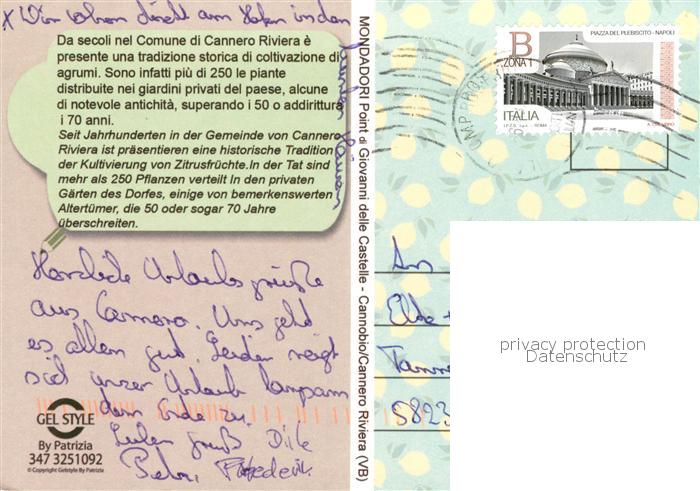 x Wir wohnen direkt am Hafen in den
Da secoli nel Comune di Cannero Riviera è
presente una tradizione storica di coltivazione di
agrumi. Sono infatti più di 250 le piante
distribuite nei giardini privati del paese, alcune
di notevole antichità, superando i 50 o addirittura
i 70 anni.
Seit Jahrhunderten in der Gemeinde von Cannero
Riviera ist präsentieren eine historische Tradition
der Kultivierung von Zitrusfrüchte.In der Tat sind
mehr als 250 Pflanzen verteilt In den privaten
Gärten des Dorfes, einige von bemerkenswerten
Altertümer, die 50 oder sogar 70 Jahre
überschreiten.
Herzliche Urlaubsgrüße
aus Cannero. Uns geht
es allen gut. Leider neigt
sich unser Urlaub langsam
dem Ende zu.
Lieben Gruß
GEL STYLE
By Patrizia
347 3251092
© Copyright Gelstyle By Patrizia
MONDADORI Point di Giovanni delle Castelle - Cannobio/Cannero Riviera (VB)
PIAZZA DEL PLEBISCITO - NAPOLI
B
ZONA 1
ITALIA
An
Elke +
5823
privacy protection
Datenschutz